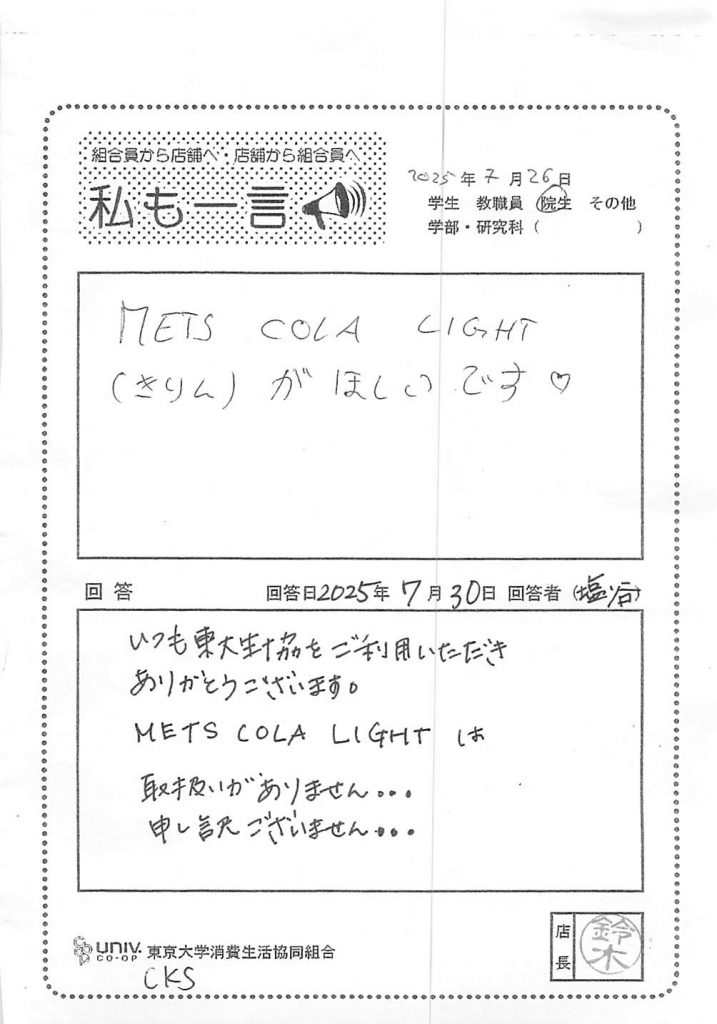 組合員から店舗へ・店舗から組合員へ
私も一言
2025年7月26日
学生 教職員 院生 その他
学部・研究科（ ）
METS COLA LIGHT
（きりん）がほしいです♡
回答 回答日2025年7月30日 回答者（塩谷）
いつも東大生協をご利用いただき
ありがとうございます。
METS COLA LIGHT は
取扱いがありません...
申し訳ございません...
UNIV. CO-OP 東京大学消費生活協同組合
CKS
店長 鈴木